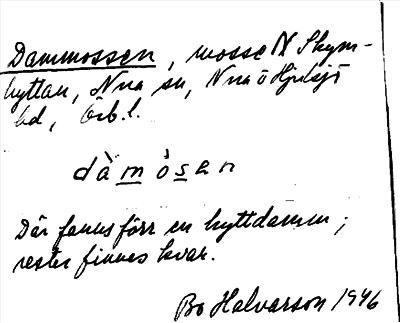 Dammossen, mosse N Skym-
hyttan, Nra sn, Nra o Hjulsjö
bd, Örb.l.
dàmósen
Där fanns förr en hyttdamm;
rester finnes kvar.
Bo Halvarson 1946